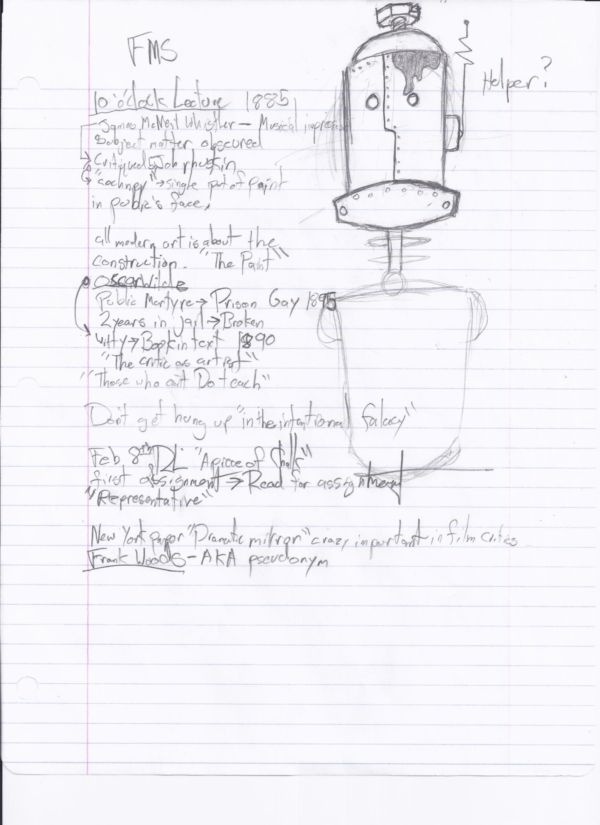 FMS
Helper?
10 o'clock Lecture 1885
James McNeil Whistler – Musical impress
Subject matter obscured
Critiqued by John
"cockney" → single pot of paint
in public's face,
all modern art is about the
construction. "The Paint"
Oscar Wilde
Public Martyre → Prison Gay 1895
2 years in jail → Broken
witty → Book in text 1890
"The critic as artist"
"Those who can't Do teach"
Don't get hung up "in the intentional falacy"
Feb 8th "A piece of Chalk"
first assignment → Read for assignment
"Representative"
New York paper "Dramatic mirror" crazy important in film critics
Frank Woods – AKA pseudonym